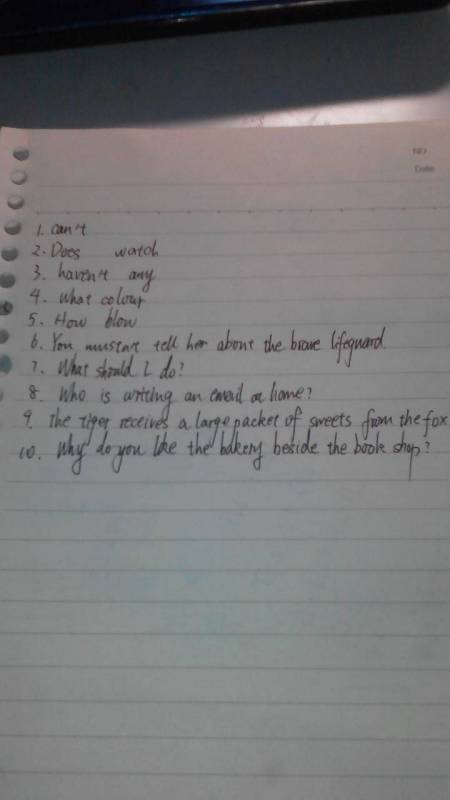 NO.
Date
1. can't
2. Does watch
3. haven't any
4. What colour
5. How blow
6. You mustn't tell her about the brave lifeguard.
7. What should I do?
8. Who is writing an email at home?
9. The tiger receives a large packet of sweets from the fox
10. Why do you like the bakery beside the book shop?